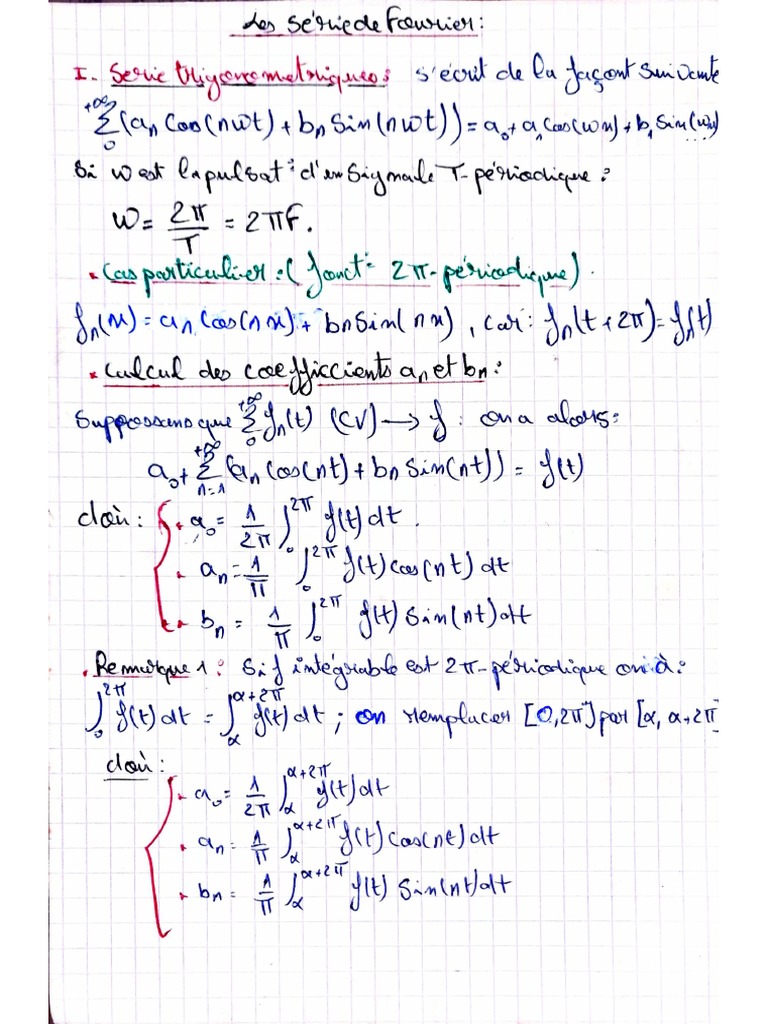 Les Série de Fourier :
I. Serie trigonometriques : s'écrit de la façont suivante
∑₀^{+∞} (aₙ Cos(nwt) + bₙ Sin(nwt)) = a₀ + a₁ Cos(wx) + b₁ Sin(wx) ...
Si w est la pulsat° d'un signale T-périodique :
W = 2π/T = 2πF.
• Cas particulier : (fonct° 2π-périodique).
fₙ(x) = aₙ Cos(nx) + bₙ Sin(nx), car : fₙ(t+2π) = fₙ(t)
• Calcul des coefficcients aₙ et bₙ :
Suppossons que ∑₀^{+∞} fₙ(t) (CV) → f : on a alors :
a₀ + ∑_{n=1}^{+∞} (aₙ Cos(nt) + bₙ Sin(nt)) = f(t)
doù : • a₀ = 1/2π ∫₀^{2π} f(t) dt.
• aₙ = 1/π ∫₀^{2π} f(t) Cos(nt) dt
• bₙ = 1/π ∫₀^{2π} f(t) Sin(nt) dt
• Remarque 1 : Si f intégrable est 2π-périodique on à :
∫₀^{2π} f(t) dt = ∫_α^{α+2π} f(t) dt ; on remplacer [0,2π] par [α, α+2π]
doù :
• a₀ = 1/2π ∫_α^{α+2π} f(t) dt
• aₙ = 1/π ∫_α^{α+2π} f(t) Cos(nt) dt
• bₙ = 1/π ∫_α^{α+2π} f(t) Sin(nt) dt